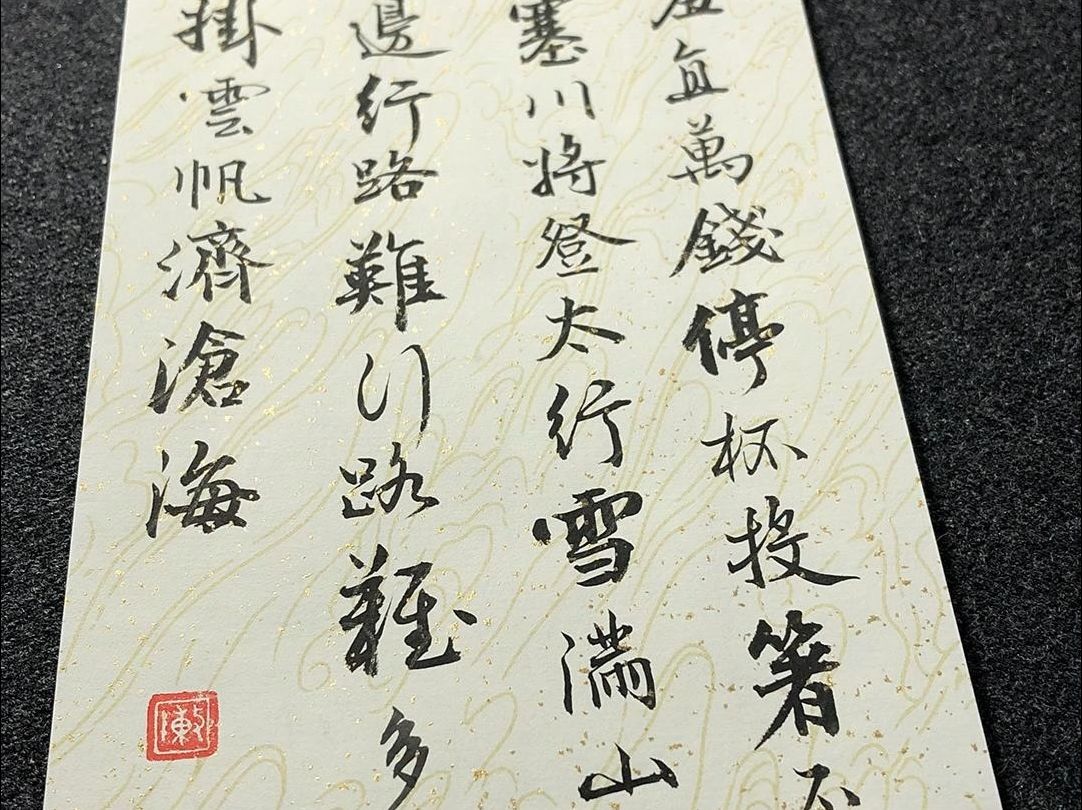 羞直萬錢停杯投箸不
塞川將登太行雪滿山
邊行路難行路難多
掛雲帆濟滄海